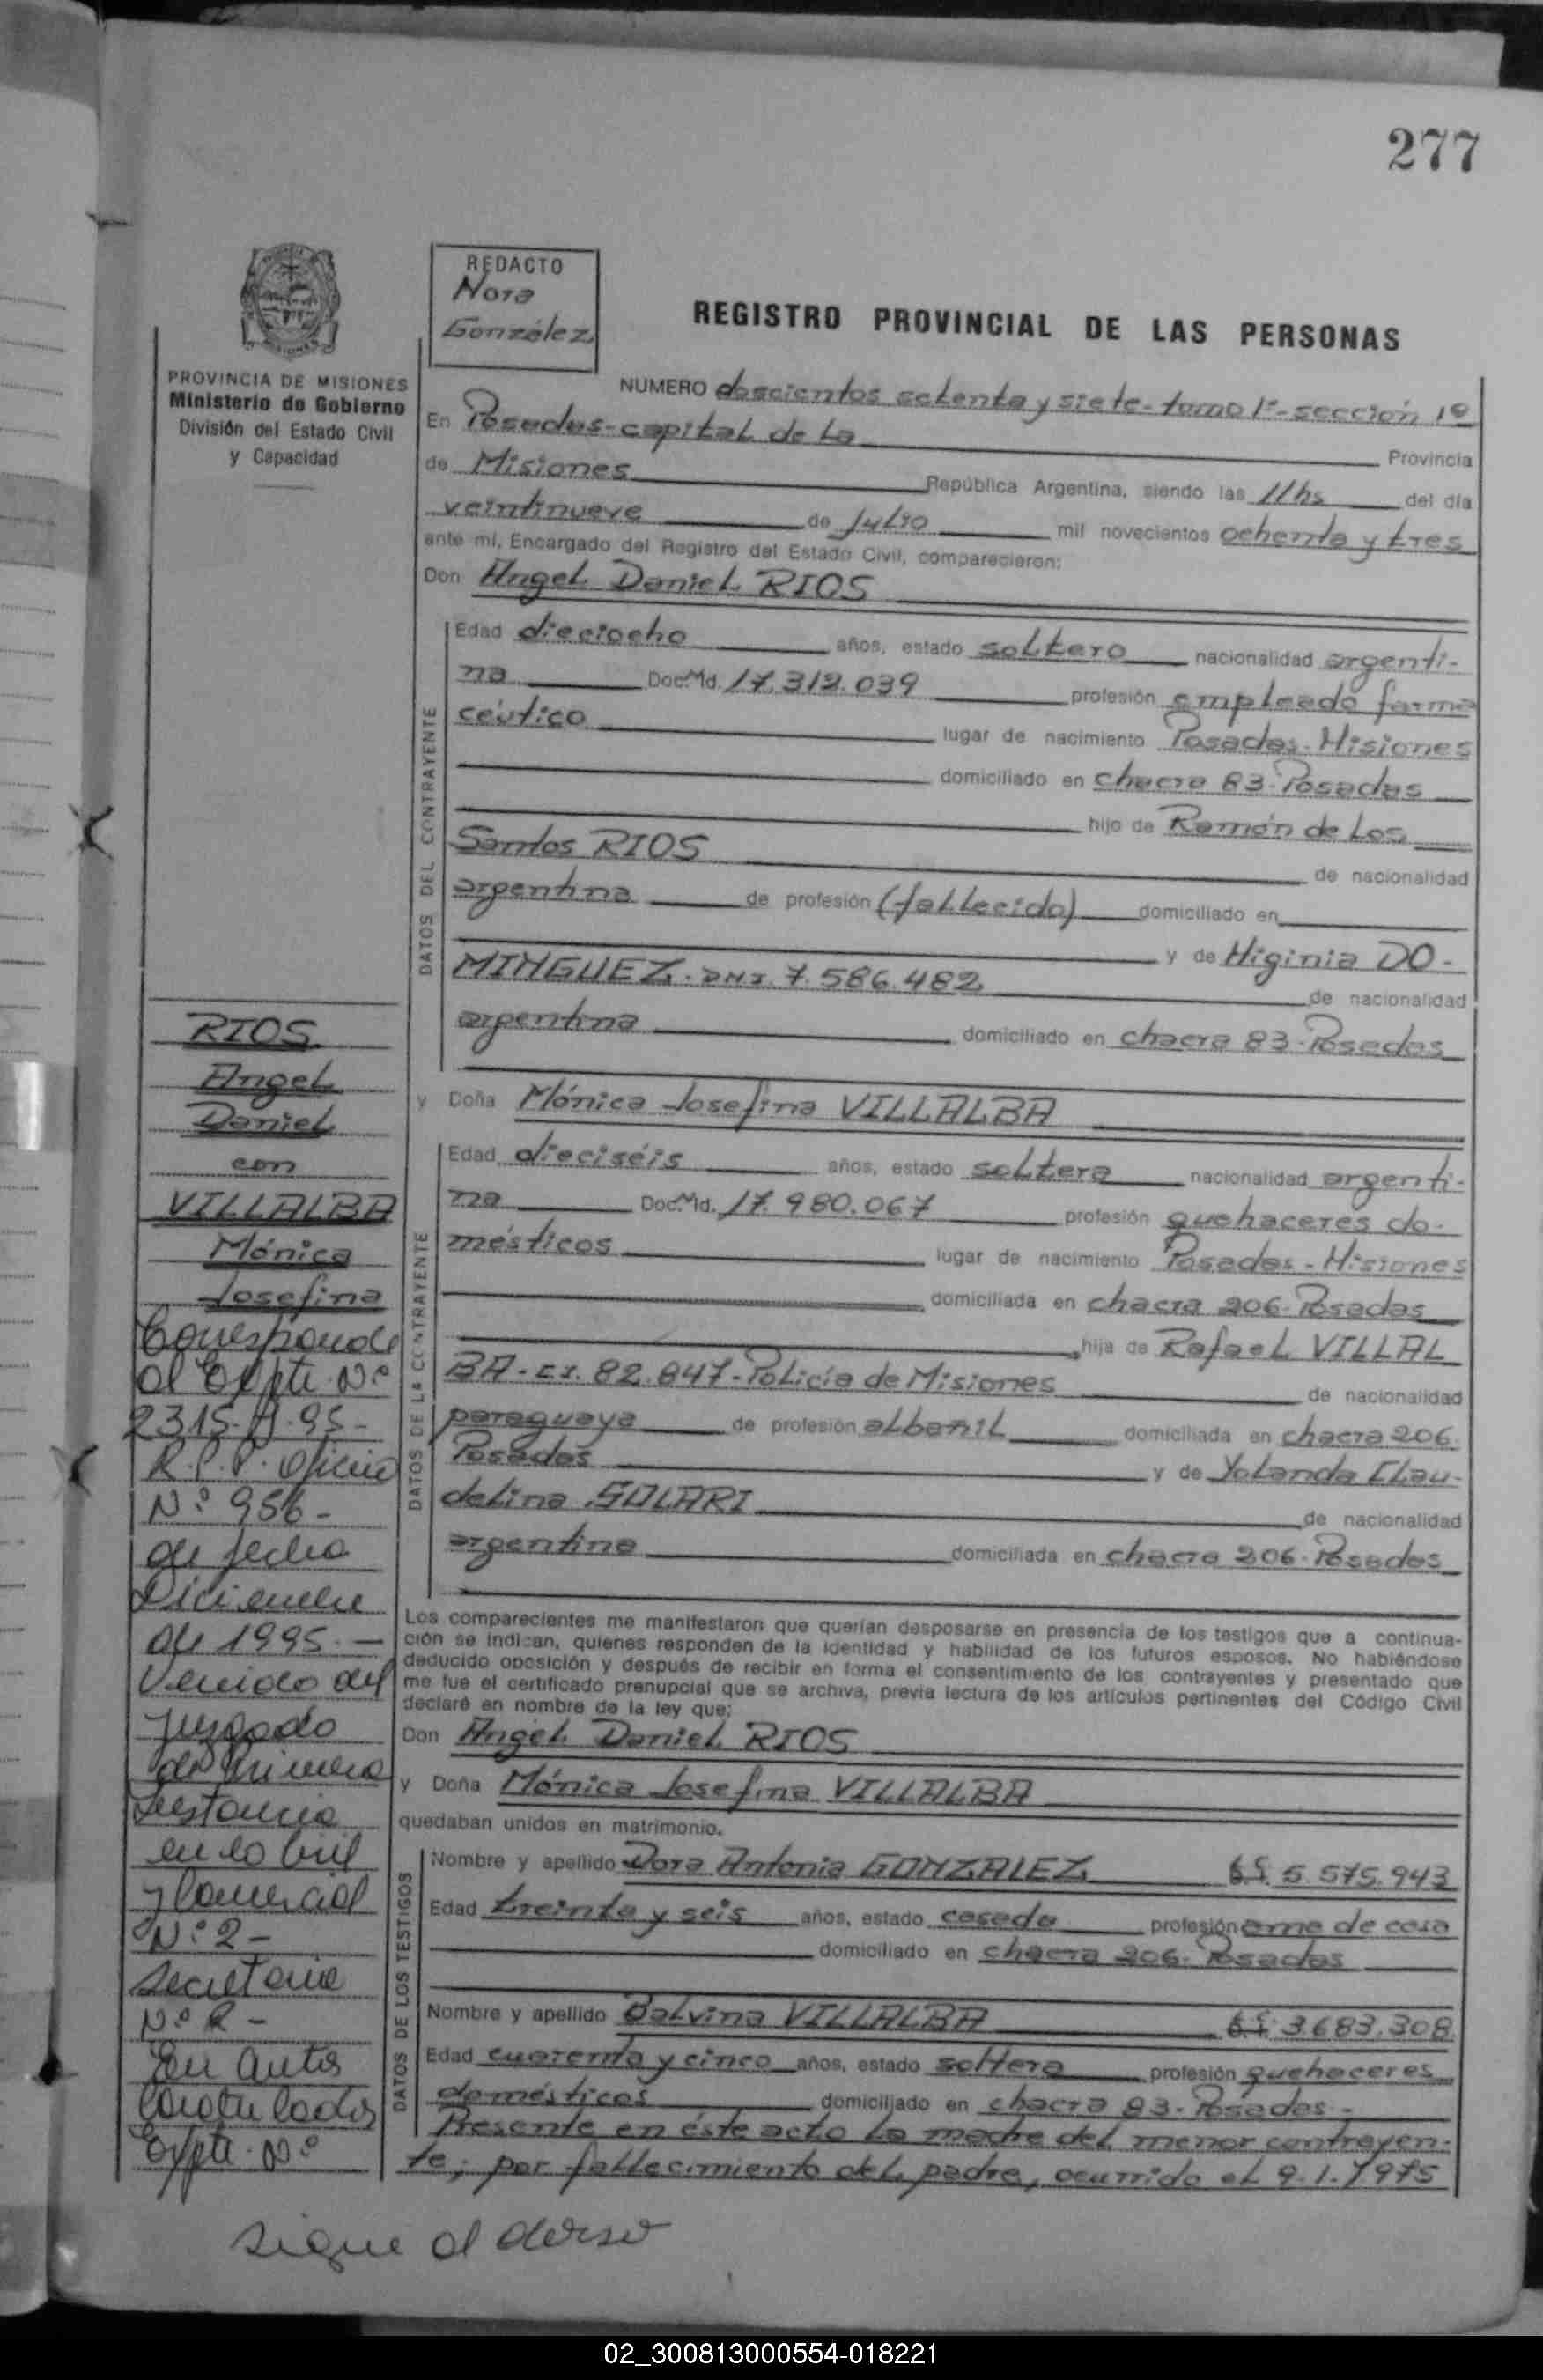 277
REDACTO
Nora
González
REGISTRO PROVINCIAL DE LAS PERSONAS
PROVINCIA DE MISIONES
Ministerio de Gobierno
División del Estado Civil
y Capacidad
NUMERO doscientos setenta y siete- tomo 1º- sección 1º
En Posadas-capital de la Provincia
de Misiones República Argentina, siendo las 11hs del día
veintinueve de Julio mil novecientos ochenta y tres
ante mí, Encargado del Registro del Estado Civil, comparecieron:
Don Angel Daniel RIOS
DATOS DEL CONTRAYENTE
Edad dieciocho años, estado soltero nacionalidad argenti-
na Doc. Nd. 17.312.039 profesión empleado farma
céutico lugar de nacimiento Posadas-Misiones
domiciliado en chacra 83-Posadas
hijo de Ramón de Los
Santos RIOS de nacionalidad
argentina de profesión (fallecido) domiciliado en
y de Higinia DO-
MINGUEZ- DNI. 7.586.482 de nacionalidad
argentina domiciliado en chacra 83-Posadas
y Doña Mónica Josefina VILLALBA
DATOS DE LA CONTRAYENTE
Edad dieciséis años, estado soltera nacionalidad argenti-
na Doc. Nd. 17.980.067 profesión quehaceres do-
mésticos lugar de nacimiento Posadas-Misiones
domiciliada en chacra 206-Posadas
hija de Rafael VILLAL
BA- C.I. 82.847-Policía de Misiones de nacionalidad
paraguaya de profesión albañil domiciliada en chacra 206-
Posadas y de Yolanda Clau-
delina SOLARI de nacionalidad
argentina domiciliada en chacra 206-Posadas
Los comparecientes me manifestaron que querían desposarse en presencia de los testigos que a continua-
ción se indican, quienes responden de la identidad y habilidad de los futuros esposos. No habiéndose
deducido oposición y después de recibir en forma el consentimiento de los contrayentes y presentado que
me fue el certificado prenupcial que se archiva, previa lectura de los artículos pertinentes del Código Civil
declaré en nombre de la ley que:
Don Angel Daniel RIOS
y Doña Mónica Josefina VILLALBA
quedaban unidos en matrimonio.
DATOS DE LOS TESTIGOS
Nombre y apellido Dora Antonia GONZALEZ 5.575.943
Edad treinta y seis años, estado casada profesión ama de casa
domiciliado en chacra 206-Posadas
Nombre y apellido Balvina VILLALBA 3.683.308
Edad cuarenta y cinco años, estado soltera profesión quehaceres
domésticos domiciliado en chacra 83-Posadas-
Presente en éste acto la madre del menor contrayen-
te, por fallecimiento del padre, ocurrido el 9.1.1975
RIOS
Angel
Daniel
con
VILLALBA
Mónica
Josefina
Corresponde
al Expte. Nº
2315-A-95-
R.P.P. Oficio
Nº 956-
de fecha
Diciembre
de 1995.-
Venido del
Juzgado
de Primera
Instancia
en lo Civil
y Comercial
Nº 2-
Secretaria
Nº 2-
En autos
Caratulados
Expte. Nº
sigue al dorso
02_300813000554-018221